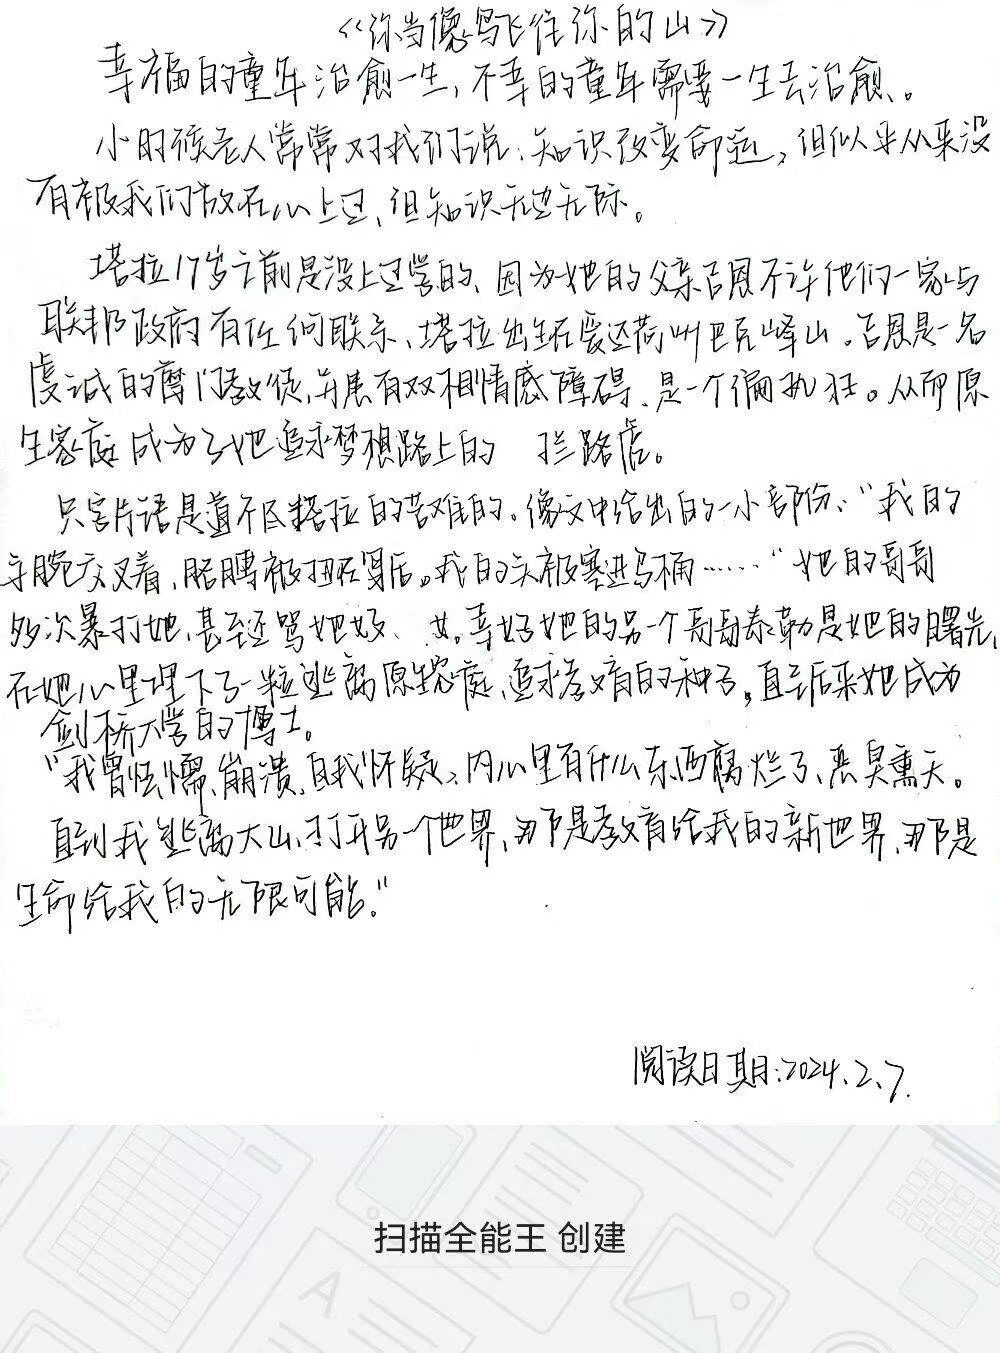 《你当像鸟飞往你的山》
幸福的童年治愈一生,不幸的童年需要一生去治愈、。
小时候老人常常对我们说:知识改变命运,但似乎从来没
有被我们放在心上过,但知识无边无际。
塔拉17岁之前是没上过学的、因为她的父亲吉恩不许他们一家与
联邦政府有任何联系、塔拉出生在爱达荷州巴克峰山。吉恩是一名
虔诚的摩门教徒,并患有双相情感障碍、是一个偏执狂。从而原
生家庭成为了她追求梦想路上的 拦路虎。
只言片语是道不尽塔拉的苦难的。像文中给出的一小部份:“我的
手腕交叉着,胳膊被扭在身后。我的头被塞进马桶……”她的哥哥
多次暴打她,甚至还骂她妓、女。幸好她的另一个哥哥泰勒是她的曙光,
在她心里埋下了一粒逃离原生家庭、追求教育的种子。直到后来她成为
剑桥大学的博士。
“我曾怯懦、崩溃、自我怀疑,内心里有什么东西腐烂了、恶臭熏天。
直到我逃离大山,打开另一个世界,那是教育给我的新世界,那是
生命给我的无限可能。”
阅读日期:2024.2.7.
扫描全能王 创建